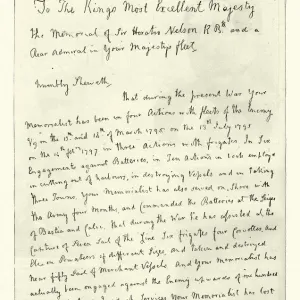 To The Kings Most Excellent Majesty
The Memorial of Sir Horatio Nelson K B: and a
Rear Admiral in Your Majestys fleet,
Humbly Sheweth,
That during the present War Your
Memorialist has been in four Actions with fleets of the Enemy
Viz on the 13th and 14th of March 1795 on the 13th July 1795
on the 14th Febry 1797 in three Actions with frigates In Six
Engagements against Batteries, in Ten Actions in boats employed
in cutting out of harbours, in destroying Vessels and in taking
Three Towns, Your Memorialist has also served on Shore with
the Army four Months and commanded the Batteries at the Sieges
of Bastia and Calvi. That during the War he has assisted at the
Capture of Seven Sail of the Line Six frigates four Corvettes and
Eleven Privateers of different Sizes, and taken and destroyed
near fifty Sail of Merchant Vessels. And Your Memorialist has
actually been engaged against the Enemy upwards of one hundred
Services Your Memorialist has lost